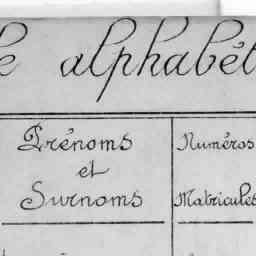 e alphabét
Prénoms
et
Surnoms
Numéros
Matricules